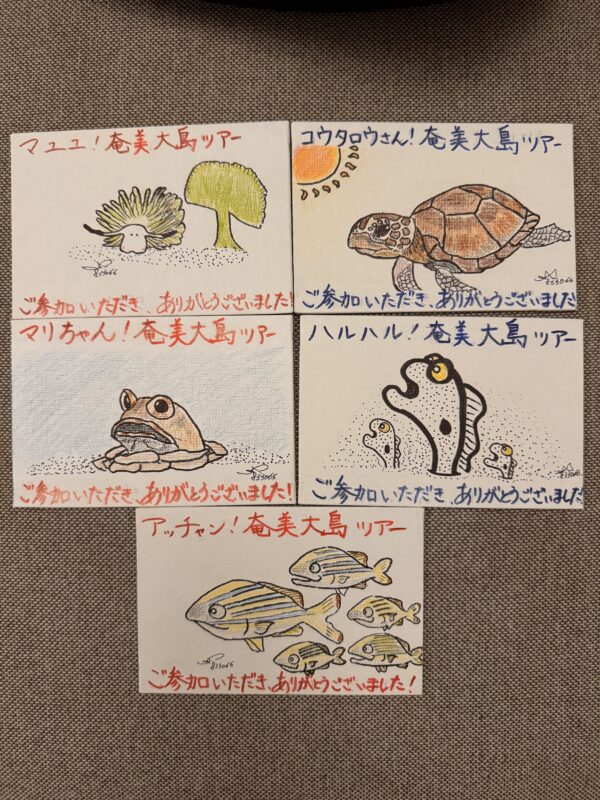 マユユ!奄美大島ツアー
ご参加いただき、ありがとうございました!
コウタロウさん!奄美大島ツアー
ご参加いただき、ありがとうございました
マリちゃん!奄美大島ツアー
ご参加いただき、ありがとうございました!
ハルハル!奄美大島ツアー
ご参加いただき、ありがとうございました
アッチャン!奄美大島ツアー
ご参加いただき、ありがとうございました!